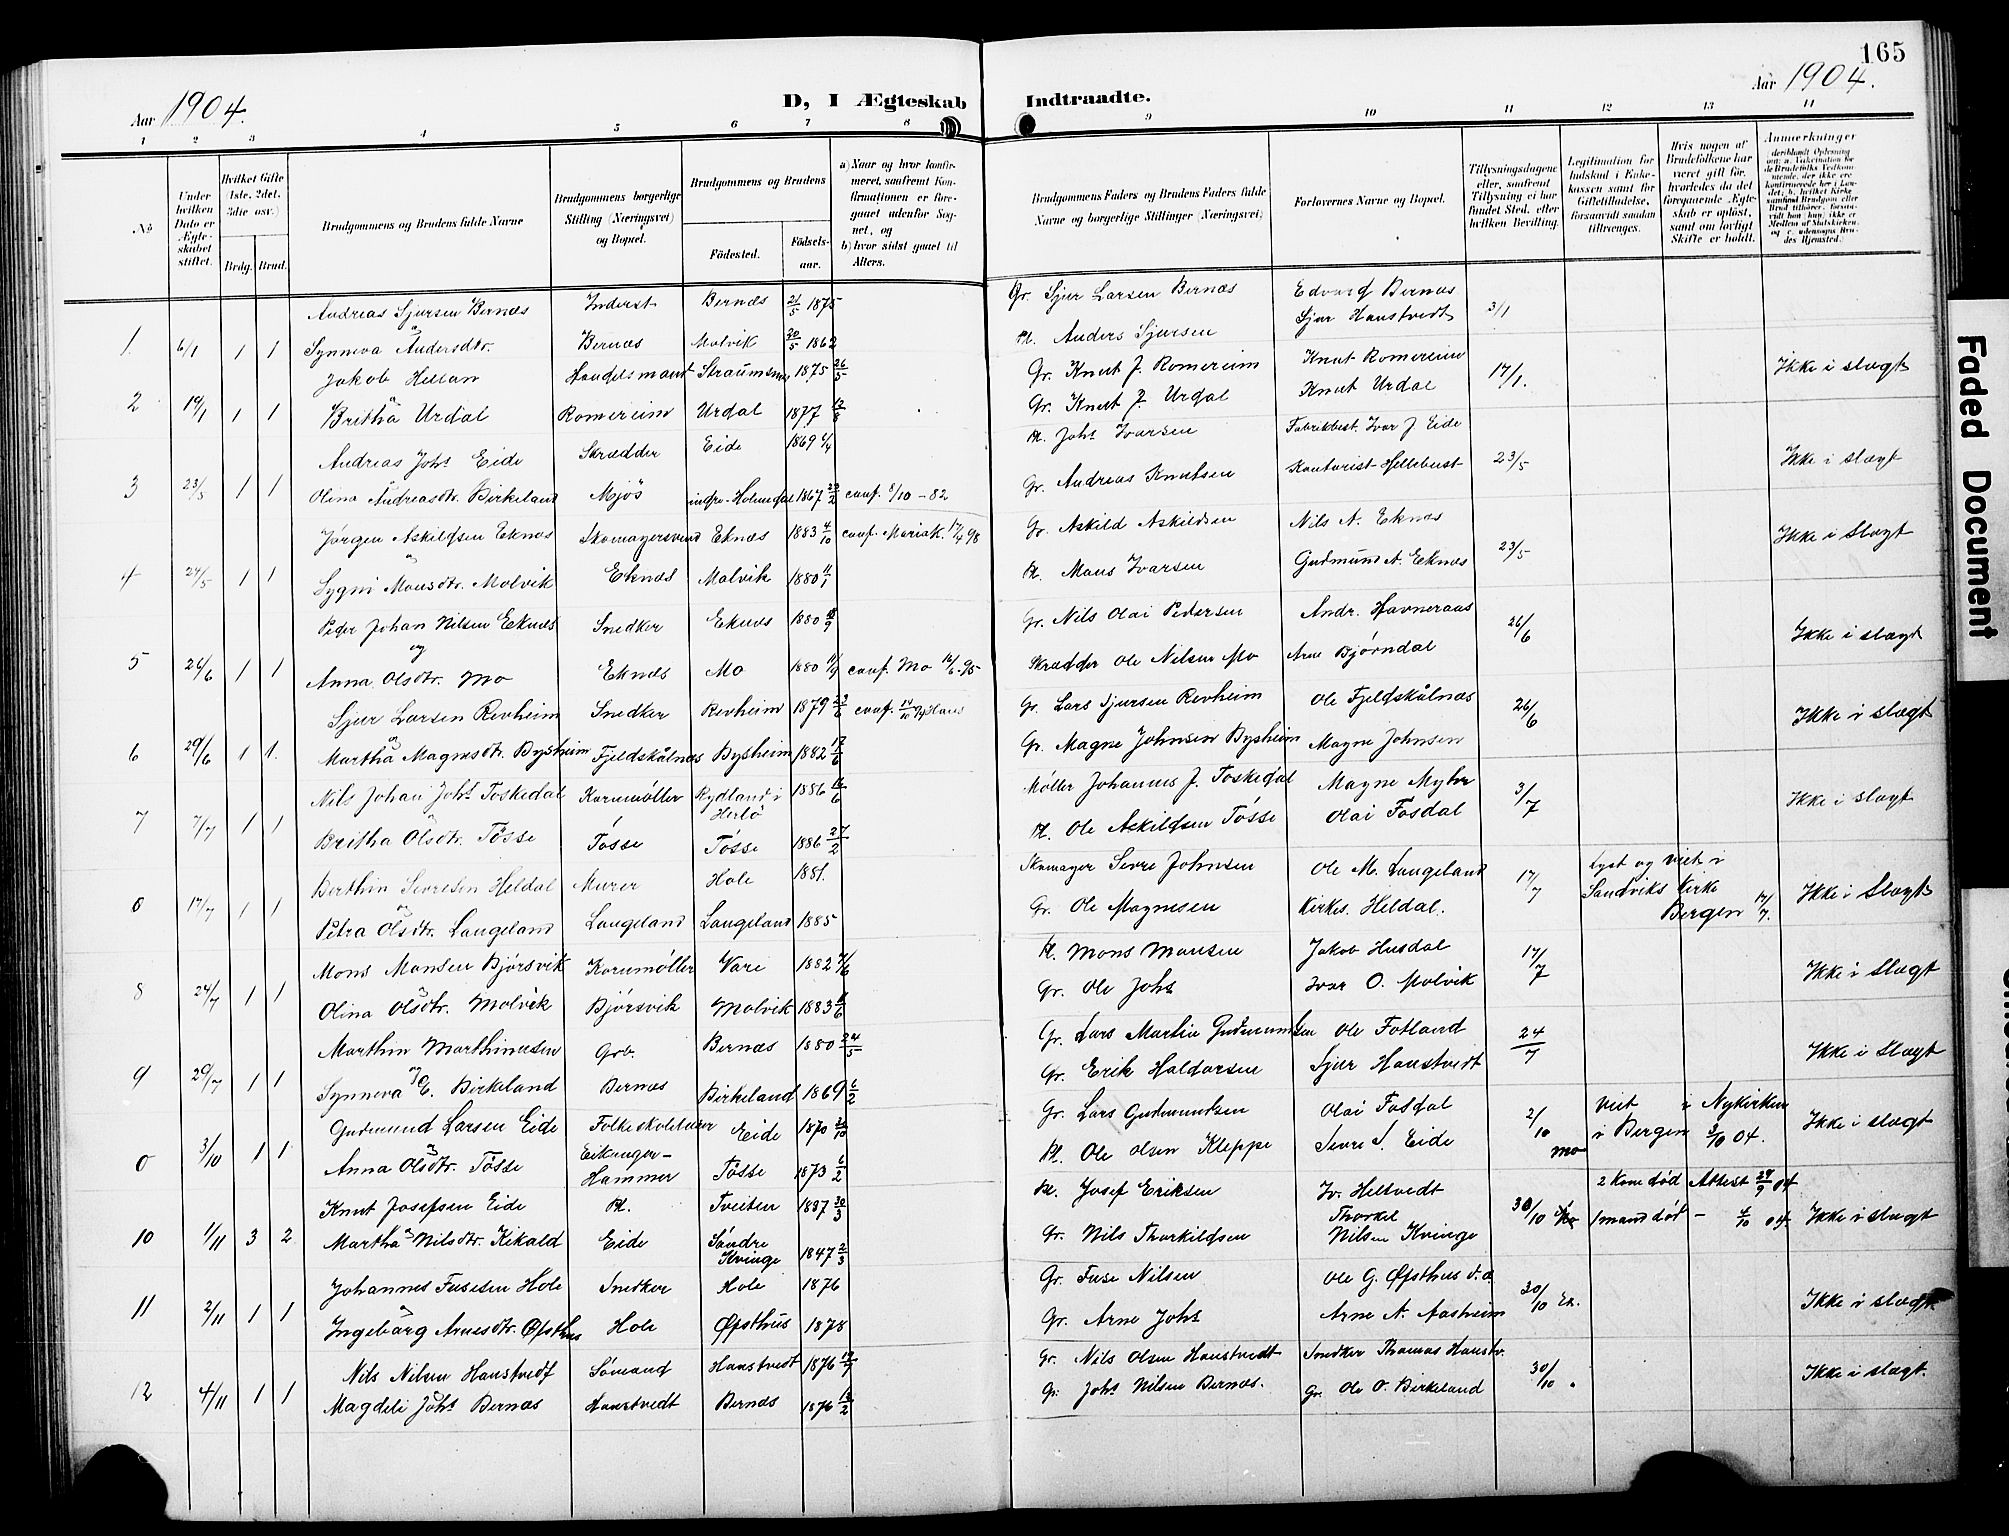 165
Aar 1904.
D, I Ægteskab Indtraadte.
Aar 1904.
1 2 3 4 5 6 7 8 9 10 11 12 13 14
No
Under hvilken Dato er Ægteskabet stiftet.
Hvilket Gifte (1ste, 2det, 3die osv.)
Brdg. Brud.
Brudgommens og Brudens fulde Navne
Brudgommens borgerlige Stilling (Næringsvei) og Bopæl.
Brudgommens og Brudens
Fødested.
Fødselsaar.
a) Naar og hvor konfirmeret, saafremt Konfirmationen er foregaaet udenfor Sognet, og
b) hvor sidst gaaet til Alters.
Brudgommens Faders og Brudens Faders fulde Navne og borgerlige Stillinger (Næringsvei)
Forlovernes Navne og Bopæl.
Tillysningsdagene eller, saafremt Tillysning ei har fundet Sted, efter hvilken Bevilling.
Legitimation for Indskud i Enkekassen samt for Giftetilladelse, forsaavidt saadan tiltrænges.
Hvis nogen af Brudefolkene har været gift før, hvorledes da det foregaaende Ægteskab er opløst, samt om lovligt Skifte er holdt.
Anmerkninger
Andreas Sjursen Bernæs Inderst Bernæs 21/5 1875 Gr. Sjur Larsen Bernæs Edvard Bernæs
1 6/1 1 1 Synneva Andersdtr. Bernæs Molvik 20/5 1862 Pl. Anders Sjursen Sjur Hanstvedt 3/1
Jakob Hellan Handelsmand Straumsnes 1875 26/5 Gr. Knut J. Romereim Knut Romereim Ikke i slægt
2 19/1 1 1 Britha Urdal Romereim Urdal 1877 12/8 Gr. Knut J. Urdal Knut Urdal 17/1.
Andreas Johs Eide Skrædder Eide 1869 4/4 Pl. Johs Ivarsen Fabrikbest. Ivar J. Eide
3 23/5 1 1 Olina Andreasdtr. Birkeland Mjøs indre-Holmedal 1867 23/2 conf. 8/10 - 82 Gr. Andreas Knutsen Kontorist Hellebust 23/5 Ikke i slægt
Jørgen Askildsen Eknæs Skomagersvend Eknæs 1883 4/10 conf. Mariak. 17/4 98 Gr. Askild Askildsen Nils A. Eknæs Ikke i slægt
4 24/5 1 1 Sygni Monsdtr. Molvik Eknæs Molvik 1880 11/1 Pl. Mons Ivarsen Gudmund A. Eknæs 23/5
Peder Johan Nilsen Eknæs Snedker Eknæs 1880 18/9 Gr. Nils Olai Pedersen Andr. Havneraas
og
5 26/6 1 1 Anna Olsdtr. Mo Eknæs Mo 1880 11/9 conf. Mo 16/6-95 Skrædder Ole Nilsen Mo Arne Bjørndal 26/6 Ikke i slægt
Sjur Larsen Revheim Snedker Revheim 1879 23/6 conf. 14/10 94 Hans Gr. Lars Sjursen Revheim Ole Fjeldskålnæs
6 29/6 1 1. Martha Magnesdtr. Bysheim Fjeldskålnæs Bysheim 1882 17/6 Gr. Magne Johnsen Bysheim Magne Johnsen 26/6 Ikke i slægt
Nils Johan Johs Toskedal Kornmøller Rydland i Herlø 1886 16/6 Møller Johannes J. Toskedal Magne Myhr
7 7/7 1 1 Britha Olsdtr. Tøsse Tøsse Tøsse 1886 27/2 Pl. Ole Askildsen Tøsse Olai Fosdal 3/7 Ikke i slægt
Berthin Sevresen Heldal Murer Hole 1881. Skomager Sevre Johnsen Ole M. Langeland lyst og viet i
0 17/7 1 1 Petra Olsdtr. Langeland Langeland Langeland 1885 Gr. Ole Magnesen Kirkes. Heldal. 17/7 Sandviks Kirke Bergen 17/7. Ikke i Slægt
Mons Monsen Bjørsvik Kornmøller Vare 1882 7/6 Pl. Mons Monsen Jakob Husdal
8 24/7 1 1 Olina Olsdtr. Molvik Bjørsvik Molvik 1883 8/6 Gr. Ole Johs Ivar O. Molvik 17/7 Ikke i Slægt
Marthin Marthinusen Grb. Bernæs 1880 24/5 Gr. Lars Martin Gudmundsen Ole Fotland
9 29/7 1 1 Synneva E. Birkeland Bernæs Birkeland 1869 6/2 Gr. Erik Haldorsen Sjur Hanstvedt 24/7 Ikke i Slægt
Gudmund Larsen Eide Folkeskolelærer Eide 1870 22/10 Gr. Lars Gudmundsen Olai Fosdal Viet i Nykirken
0 3/10 1 1 Anna Olsdtr. Tøsse Eikanger-Hammer Tøsse 1873 6/2 Pl. Ole Olsen Kleppe Sevre S. Eide 2/10 Mo i Bergen 3/10 04. Ikke i slægt
Knut Josefsen Eide Pl. Tveiten 1837 30/3 Pl. Josef Eriksen Iv. Heltvedt 2 Kone død Attest 29/9 04
10 1/11 3 2 Martha Nilsdtr. Kikald Eide Søndre Kvinge 1847 2/3 Gr. Nils Thorkildsen Thorkel Nilsen Kvinge 30/10 1 mand død - 4/10 04. Ikke i slægt
Johannes Fusesen Hole Snedker Hole 1876 Gr. Fuse Nilsen Ole G. Øfsthus s.d.
11 2/11 1 1 Ingeborg Arnesdtr. Øfsthus Hole Øfsthus 1878 Gr. Arne Johs Arne N. Aasheim 30/10 Ek. Ikke i slægt
Nils Nilsen Hanstvedt Sømand Hanstvedt 1876 Gr. Nils Olsen Hanstvedt Snedker Thomas Hanstv.
12 4/11 1 1 Magdeli Johs Bernæs Hanstvedt Bernæs 1876 12/2 Gr. Johs Nilsen Bernæs. Gr. Ole O. Birkeland 30/10 Ikke i slægt.
Faded Document